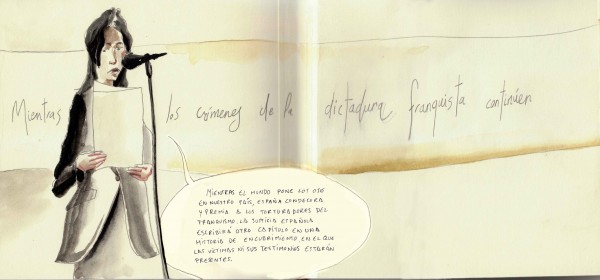 Mientras los crímenes de la dictadura franquista continúen
MIENTRAS EL MUNDO PONE LOS OJOS
EN NUESTRO PAÍS, ESPAÑA CONDECORA
Y PREMIA A LOS TORTURADORES DEL
FRANQUISMO. LA JUSTICIA ESPAÑOLA
ESCRIBIRÁ OTRO CAPÍTULO EN UNA
HISTORIA DE ENCUBRIMIENTO, EN EL QUE
LAS VÍCTIMAS NI SUS TESTIMONIOS ESTARÁN
PRESENTES.